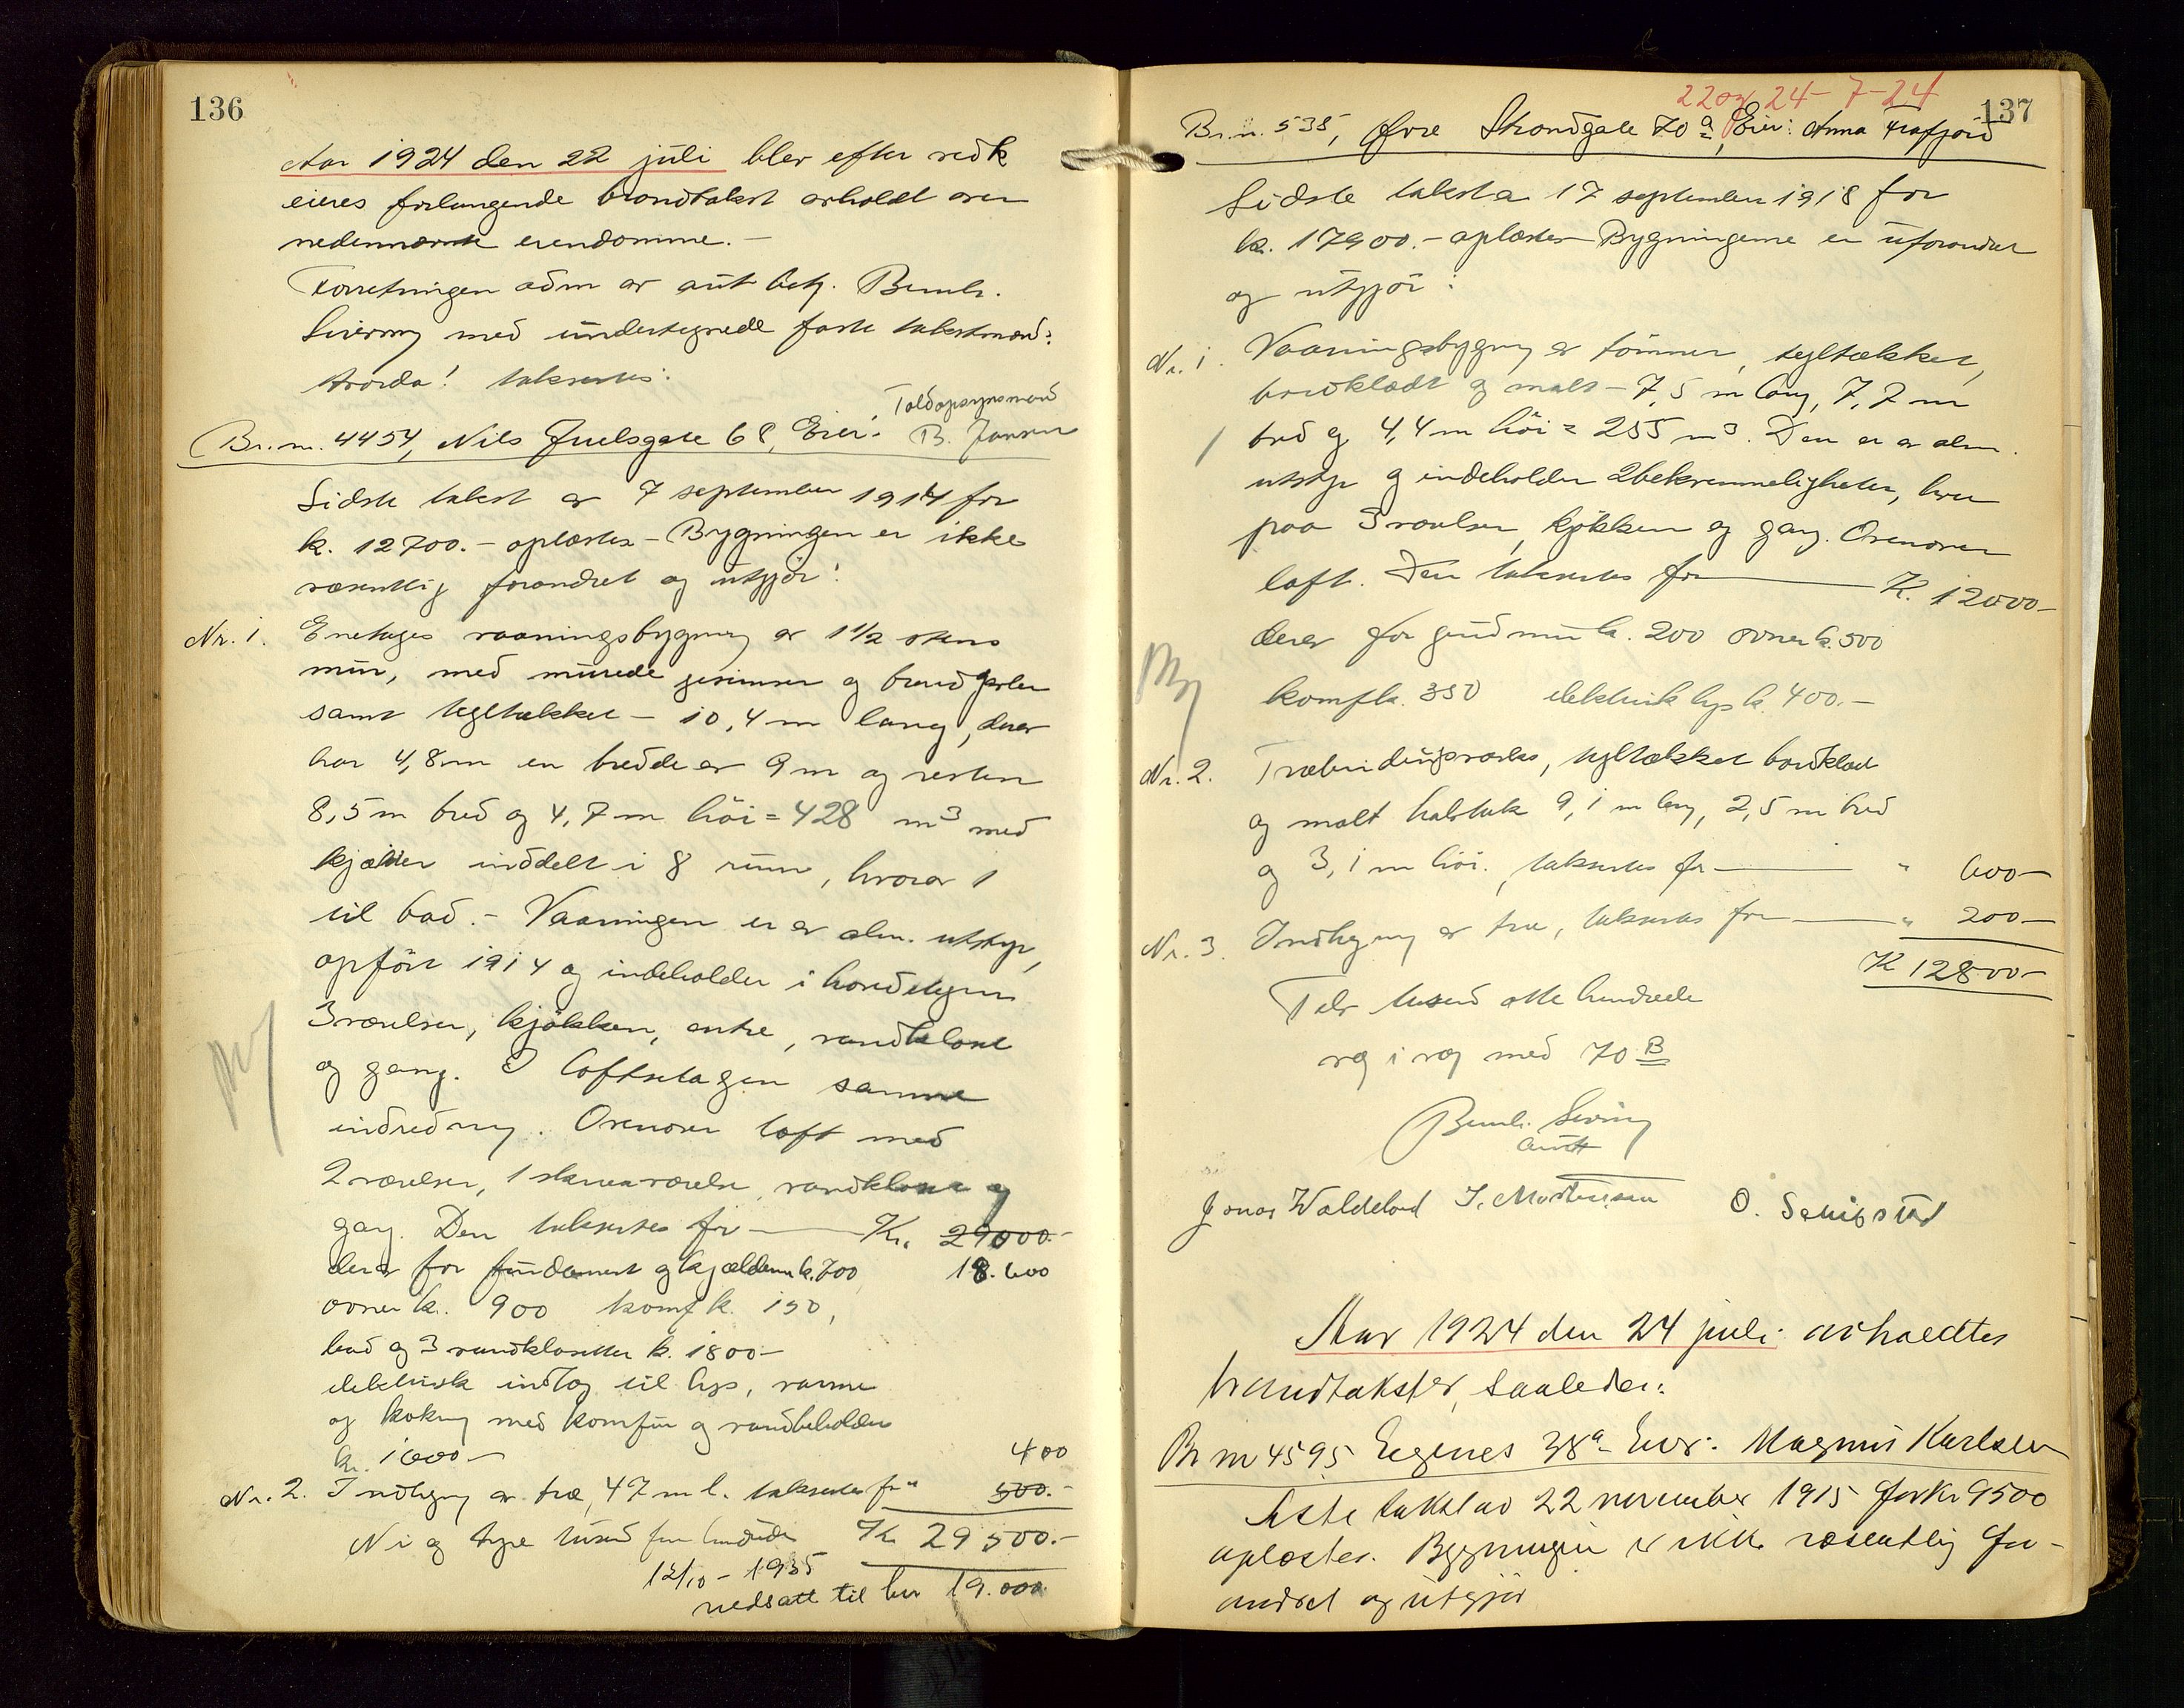 136
Aar 1924 den 22 juli blev efter vedk
eieres forlangende brandtakst avholdt over
nedennævnte eiendomme.-
Forretningen adm av aut bety. Bernh.
Sivering med undertegnede faste takstmænd:
Hvorda! takseres:
Br.nr. 4454, Nils Juelsgate 68, Eier: Toldopsynsmand
B. Jansen
Sidste takst av 7 september 1914 for
k. 12700.- oplæstes - Bygningen er ikke
væsentlig forandret og utgjør:
Nr. 1. Enetages vaaningsbygning av 1½ stens
mur, med murede gesimser og brandgavler
samt tegltækket - 10,4 m lang, derav
har 4,8 m en bredde av 9 m og resten
8,5 m bred og 4,7 m høi = 428 m³ med
kjælder inddelt i 8 rum, hvorav 1
til bad.- Vaaningen er av alm. utstyr,
opført 1914 og indeholder i hovedetagen
3 værelser, kjøkken, entre, vandkloset
og gang. I loftsetagen samme
indredning. Ovenover loft med
2 værelser, 1 skraaværelse, vandkloset og
gang. Den takseres for Kr. 29000.-
derav for fundament og kjælderen k. 700 18.600
ovner k. 900 komf k. 150,
bad og 3 vandklosetter k. 1800-
elektrisk indlæg til lys, varme
og kokning med komfur og vandbeholder
kr. 1600- 400
Nr. 2. Indhegning av træ, 47 m l. takseres for " 500.-
Ni og tyve tusend fem hundrede Kr. 29500.-
12/10 - 1935
nedsatt til kr 19.000
22 og 24-7-24
137
Br.nr. 535, Øvre Strandgate 70 a, Eier: Anna Frafjord
Sidste takst a 17 september 1918 for
k. 17900.- oplæstes - Bygningerne er uforandret
og utgjør:
Nr. 1. Vaaningsbygning av tømmer, tegltækket,
bordklædt og malt - 7,5 m lang, 7,7 m
bred og 4,4 m høi = 255 m³. Den er av alm.
utstyr og indeholder 2 bekvemmeligheter, hver
paa 3 værelser, kjøkken og gang. Ovenover
loft. Den takseres for K. 12000-
derav for grundmur k. 200 ovner k. 500
komf k. 350 elektrisk lys k. 400.-
Nr. 2. Træbindingsverks, tegltækket bordklædt
og malt halvtak 9,1 m lang, 2,5 m bred
og 3,1 m høi., takseres for " 600-
Nr. 3. Indhegning av træ, takseres for " 200-
K 12800-
Tolv tusend otte hundrede
væg i væg med 70 B
Bernh. Sivering
aut
Jonas Waldeland J. Mortensen O. Schibsted
Aar 1924 den 24 juli avholdtes
brandtakster, saaledes:
Br nr 4595 Egenes 38a Eier: Magnus Karlsen
Siste takst av 22 november 1915 for kr 9500
oplæstes. Bygningen er ikke væsentlig for-
andret og utgjør